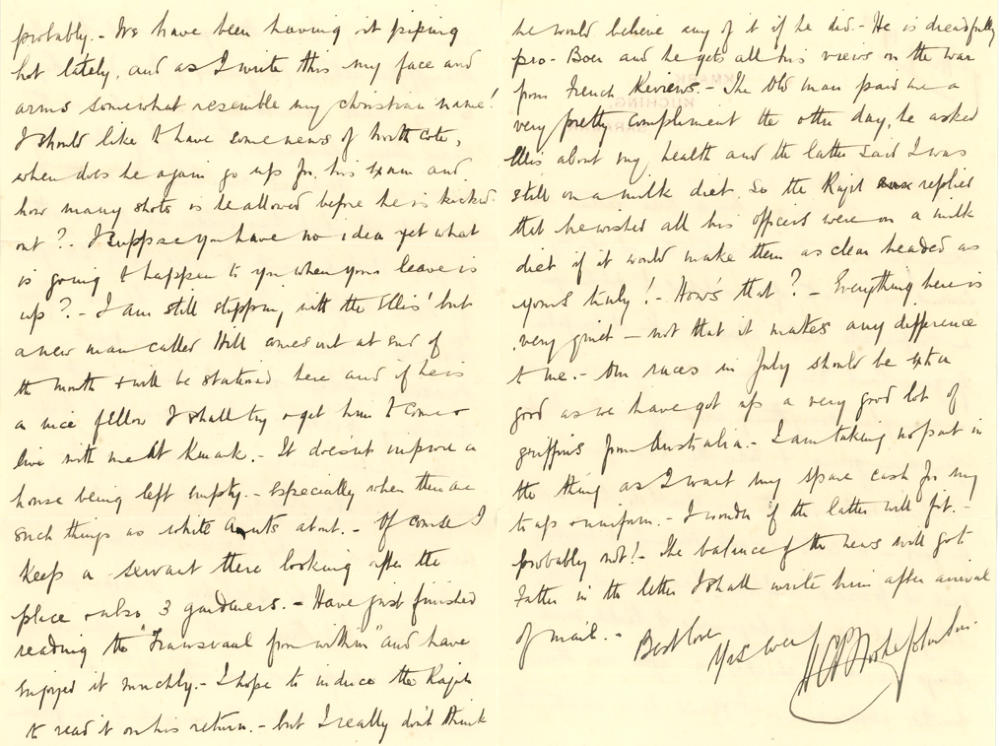 probably. - We have been having it piping
hot lately, and as I write this my face and
arms somewhat resemble my christian name!
I should like to have some news of Northcote,
when does he again go up for his exam and
how many shots is he allowed before he is kicked
out? - I suppose you have no idea yet what
is going to happen to you when your leave is
up? - I am still stopping with the Ellis' but
a new man called Hill comes out at end of
the month & will be stationed here and if he is
a nice fellow I shall try & get him to come &
live with me at Kmark. - It doesn't improve a
house being left empty. - especially when there are
such things as white ants about. - Of course I
keep a servant there looking after the
place & also 3 gardeners. - Have just finished
reading the "Transvaal from within" and have
enjoyed it muchly. - I hope to induce the Rajah
to read it on his return. - but I really don't think
he would believe any of it if he did - He is dreadfully
pro-Boer and he gets all his views on the war
from French Reviews. - The Old man paid me a
very pretty compliment the other day, he asked
Ellis about my health and the latter said I was
still on a milk diet. So the Rajah replied
that he wished all his officers were on a milk
diet if it would make them as clear headed as
yours truly! - How's that? - Everything here is
very quiet - not that it makes any difference
to me. - Our races in July should be extra
good as we have got up a very good lot of
griffins from Australia. - I am taking no part in
the thing as I want my spare cash for my
togs & uniform. - I wonder if the latter will fit. -
probably not! - The balance of the news will get
Father in the letter I shall write him after arrival
of mail. -
Best love
Yrs ever